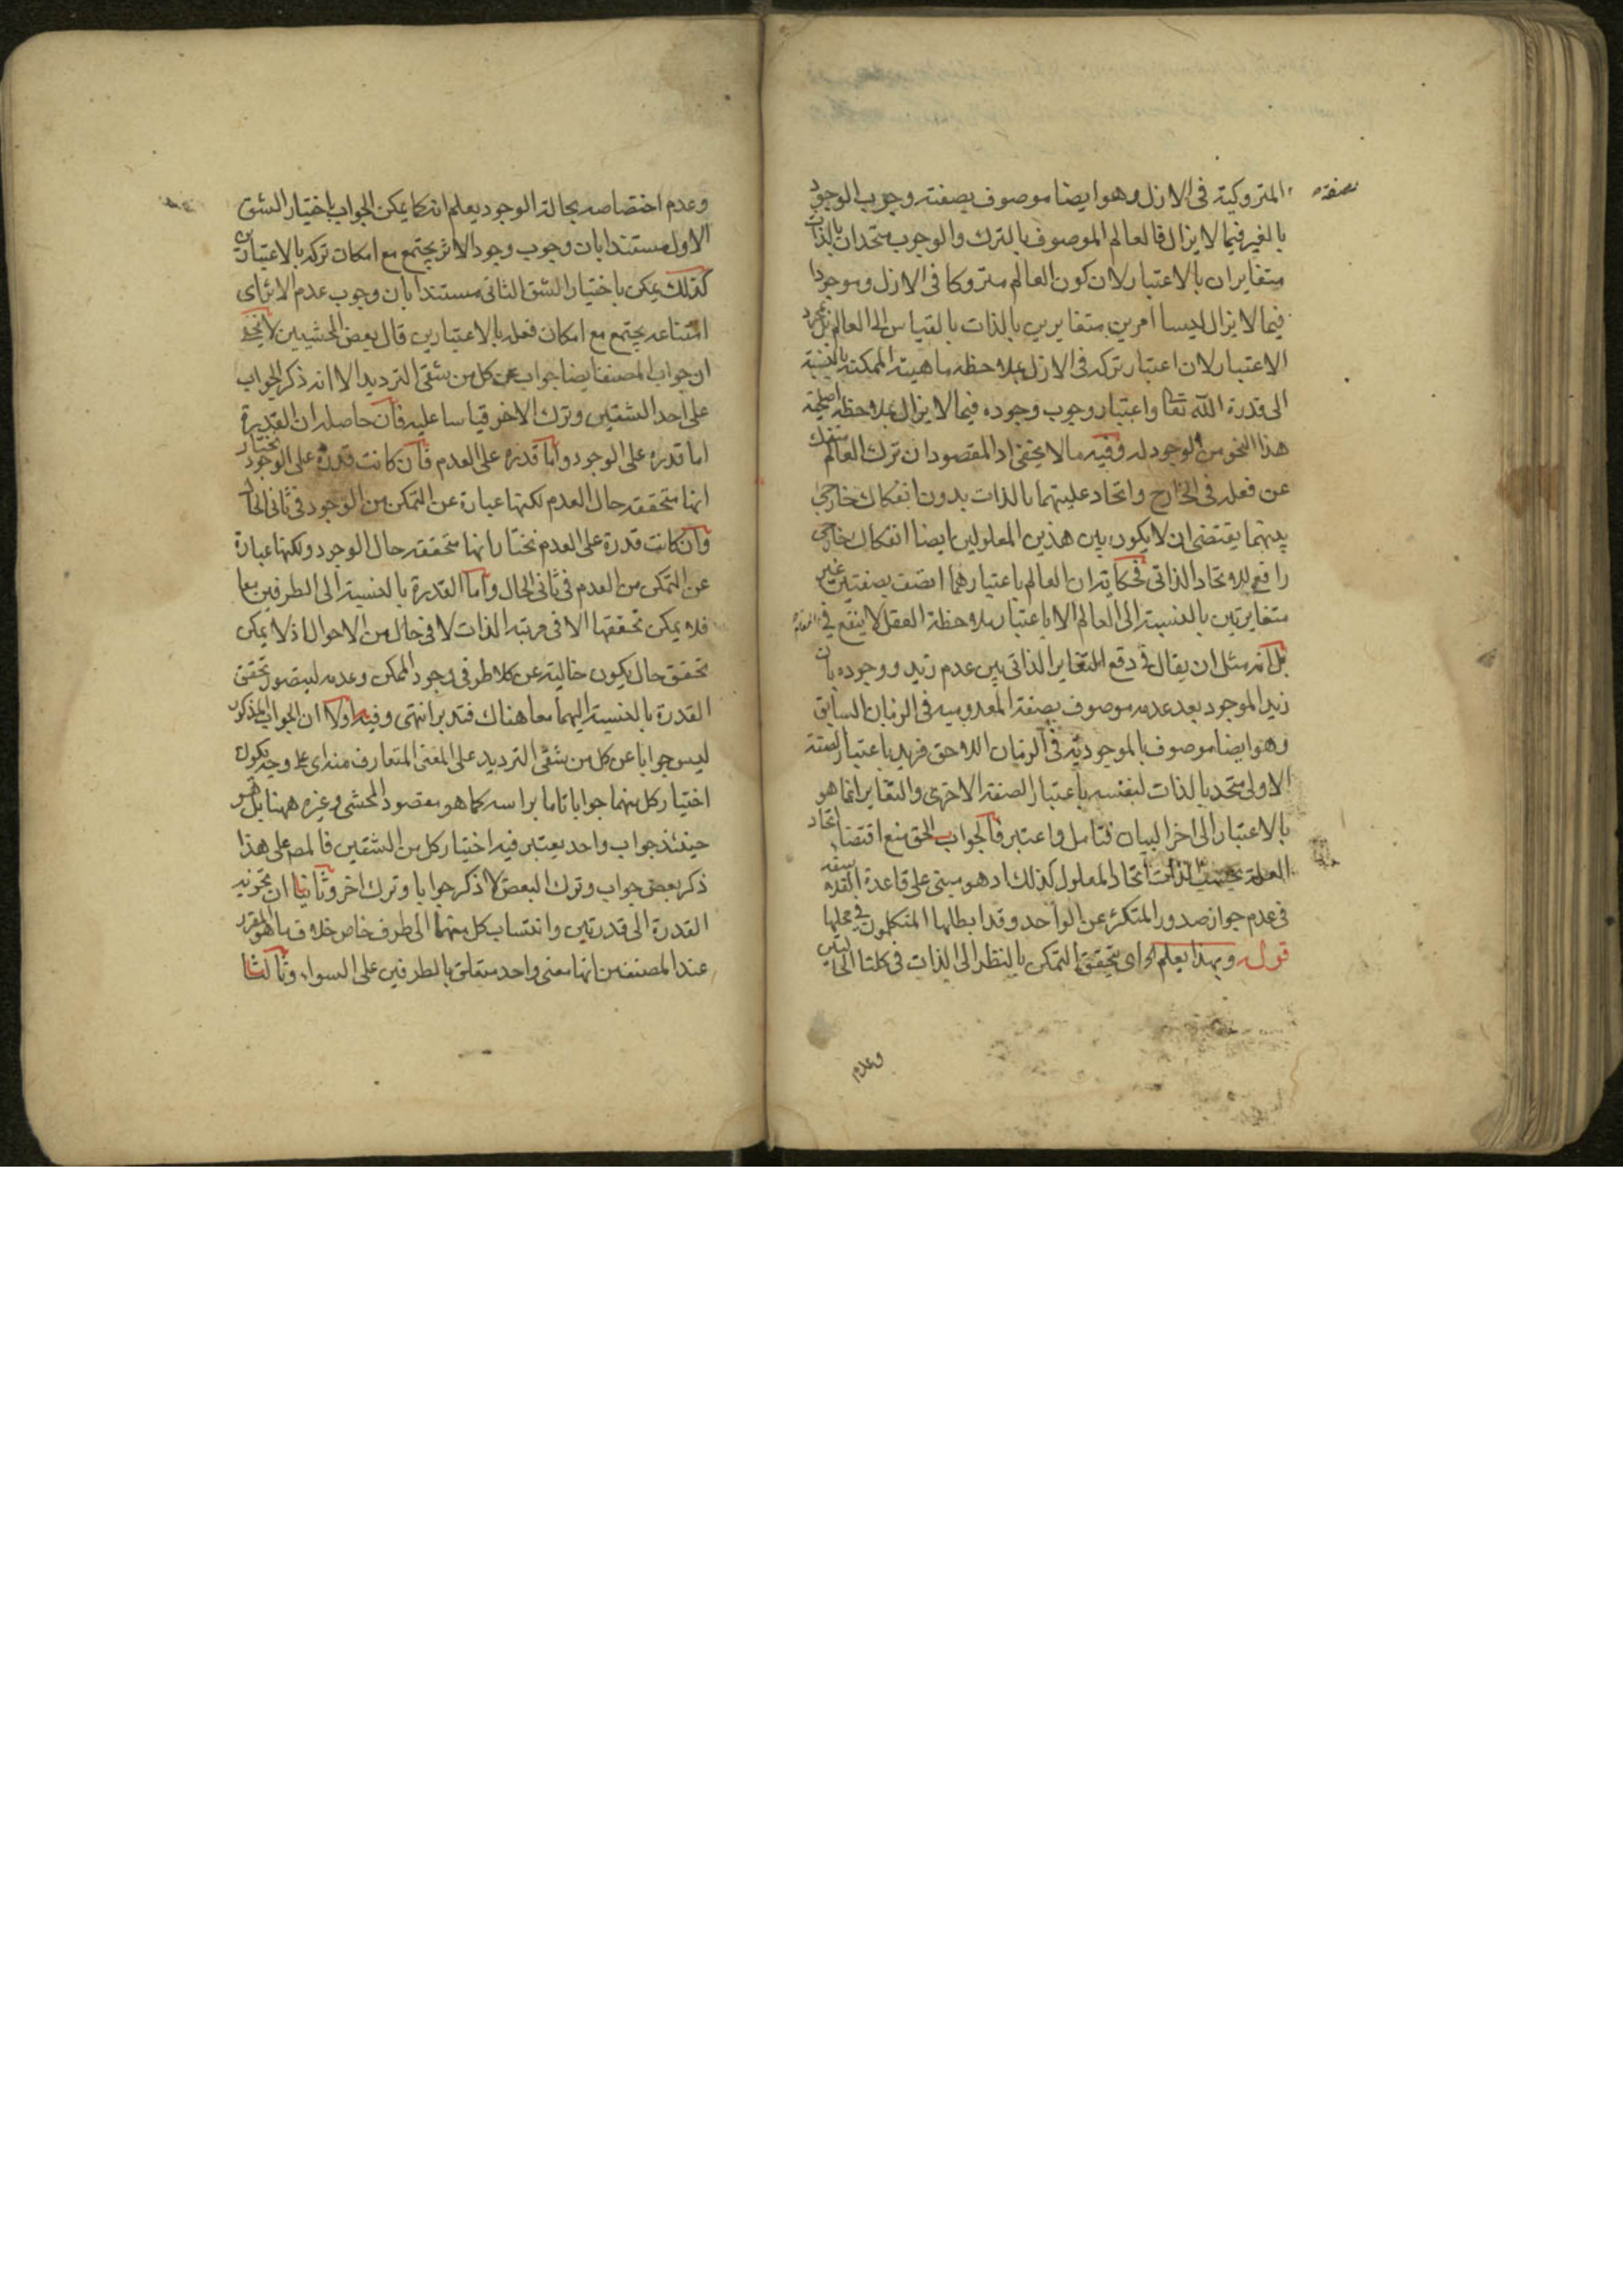 المتروكية فى الازل وهو ايضا موصوف بصفته وجوب الوجود
بالغير فيما لا يزال فالعالم الموصوف بالترك والوجوب متحدان بالذات
متغايران بالاعتبار لان كون العالم متروكا فى الازل وموجودا
فيما لا يزال ليسا امرين متغايرين بالذات بالقياس الى العالم بل بمجرد
الاعتبار لان اعتبار تركه فى الازل بملاحظه ماهيته الممكنة بالنسبة
الى قدرة الله تعا واعتبار وجوب وجوده فيما لا يزال بملاحظه
هذا النحو من الوجود له وفيه ما لا يخفى اذ المقصود ان ترك العالم منفك
عن فعله فى الخارج واتحاد علتيهما بالذات بدون انفكاك خارجى
بينهما يقتضى ان لا يكون بين هذين المعلولين ايضا انفكاك خارجى
رافع للاتحاد الذاتى فحكايته ان العالم باعتبارهما اتصف بصفتين غير
متغايرتين بالنسبة الى العالم الا باعتبار ملاحظة العقل لا ينفع فى
بل انه مثل ان يقال فى دفع التغاير الذاتى بين عدم زيد ووجوده بان
زيد الموجود بعد عدمه موصوف بصفة المعدومية فى الزمان السابق
وهو ايضا موصوف بالموجودية فى الزمان اللاحق فزيد باعتبار الصفة
الاولى متحد بالذات لنفسه باعتبار الصفة الاخرى والتغاير انما هو
بالاعتبار الى اخر البيان فتامل واعتبر فالجواب الحق منع اقتضاء اتحاد
العلة اتحاد المعلول كذلك اذ هو مبنى على قاعدة الفلاسفة
فى عدم جواز صدور المتكثر عن الواحد وقد ابطلها المتكلمون فى محلها
قوله وبهذا يعلم اه اى بتحقق التمكن بالنظر الى الذات فى كلتا الحالتين
وعدم
وعدم اختصاصه بحالة الوجود يعلم انه كما يمكن الجواب باختيار الشق
الاول مستندا بان وجوب وجود الاثر يجتمع مع امكان تركه بالاعتبارين
كذلك يمكن باختيار الشق الثانى مستندا بان وجوب عدم الاثر اى
امتناعه يجتمع مع امكان فعله بالاعتبارين قال بعض المحشيين لا يخفى
ان جواب المصنف ايضا جواب عن كل من شقى الترديد الا انه ذكر الجواب
على احد الشقين وترك الاخر قياسا عليه فان حاصله ان القدرة
اما قدرة على الوجود واما قدرة على العدم فان كانت قدرة على الوجود نختار
انها متحققه حال العدم لكنها عبارة عن التمكن من الوجود فى ثانى الحال
وان كانت قدرة على العدم نختار انها متحققه حال الوجود ولكنها عبارة
عن التمكن من العدم فى ثانى الحال واما القدرة بالنسبة الى الطرفين معا
فلا يمكن تحققها الا فى مرتبة الذات لا فى حال من الاحوال اذ لا يمكن
تحقق حال يكون خالية عن كلا طرفى وجود الممكن وعدمه ليتصور تحقق
القدرة بالنسبة اليهما معا هناك فتدبر انتهى وفيه اولا ان الجواب المذكور
ليس جوابا عن كل من شقى الترديد على المعنى المتعارف منه اى على وجه يكون
اختيار كل منهما جوابا تاما براسه كما هو مقصود المحشى وغيره ههنا بل هو
حينئذ جواب واحد يعتبر فيه اختيار كل من الشقين فالمص على هذا
ذكر بعض جواب وترك البعض لا ذكر جوابا وترك اخر وثانيا ان تجزيه
القدرة الى قدرتين وانتساب كل منهما الى طرف خاص خلاف ما هو المقرر
عند المصنف من انها معنى واحد متعلق بالطرفين على السواء وثالثا